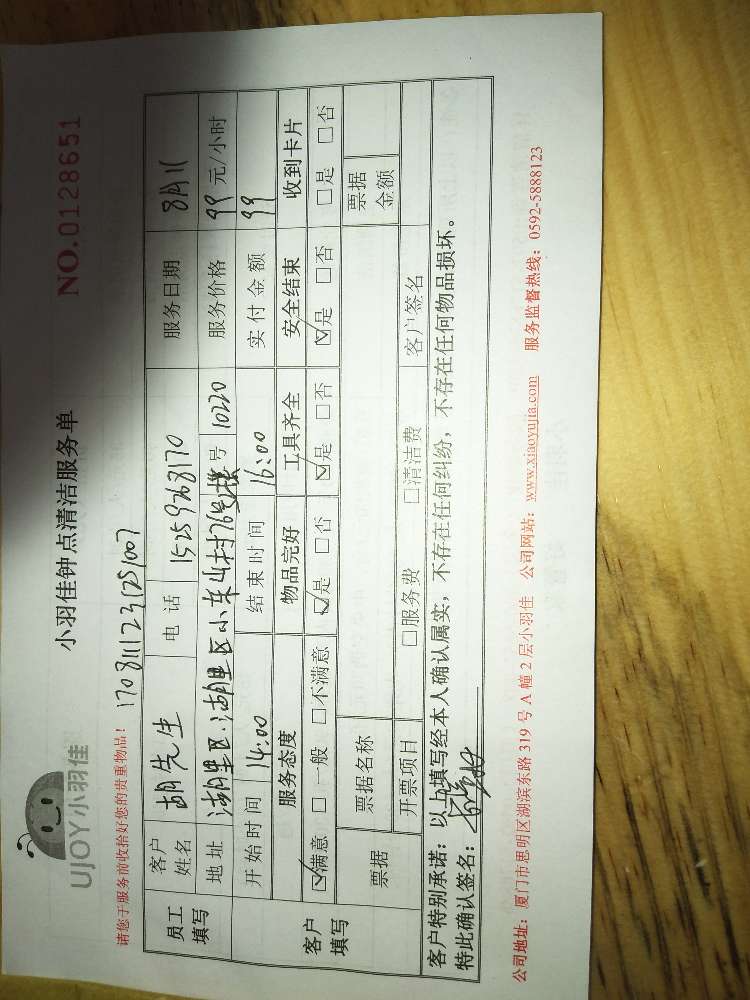 UJOY小羽佳
小羽佳钟点清洁服务单
NO.0128651
请您于服务前收拾好您的贵重物品！
1708111231251007
员工填写 客户姓名 胡先生 电话 15259268170 服务日期 8月11
地址 湖里区湖里区小东山村76号楼号 10220 服务价格 99 元/小时
开始时间 14:00 结束时间 16:00 实付金额 99
客户填写 服务态度 物品完好 工具齐全 安全结束 收到卡片
☑满意 □一般 □不满意 ☑是 □否 ☑是 □否 ☑是 □否 □是 □否
票据 票据名称 票据金额
开票项目 □服务费 □清洁费 客户签名
客户特别承诺：以上填写经本人确认属实，不存在任何纠纷，不存在任何物品损坏。
特此确认签名：
公司地址：厦门市思明区湖滨东路 319 号 A 幢 2 层小羽佳 公司网站：www.xiaoyujia.com 服务监督热线：0592-5888123